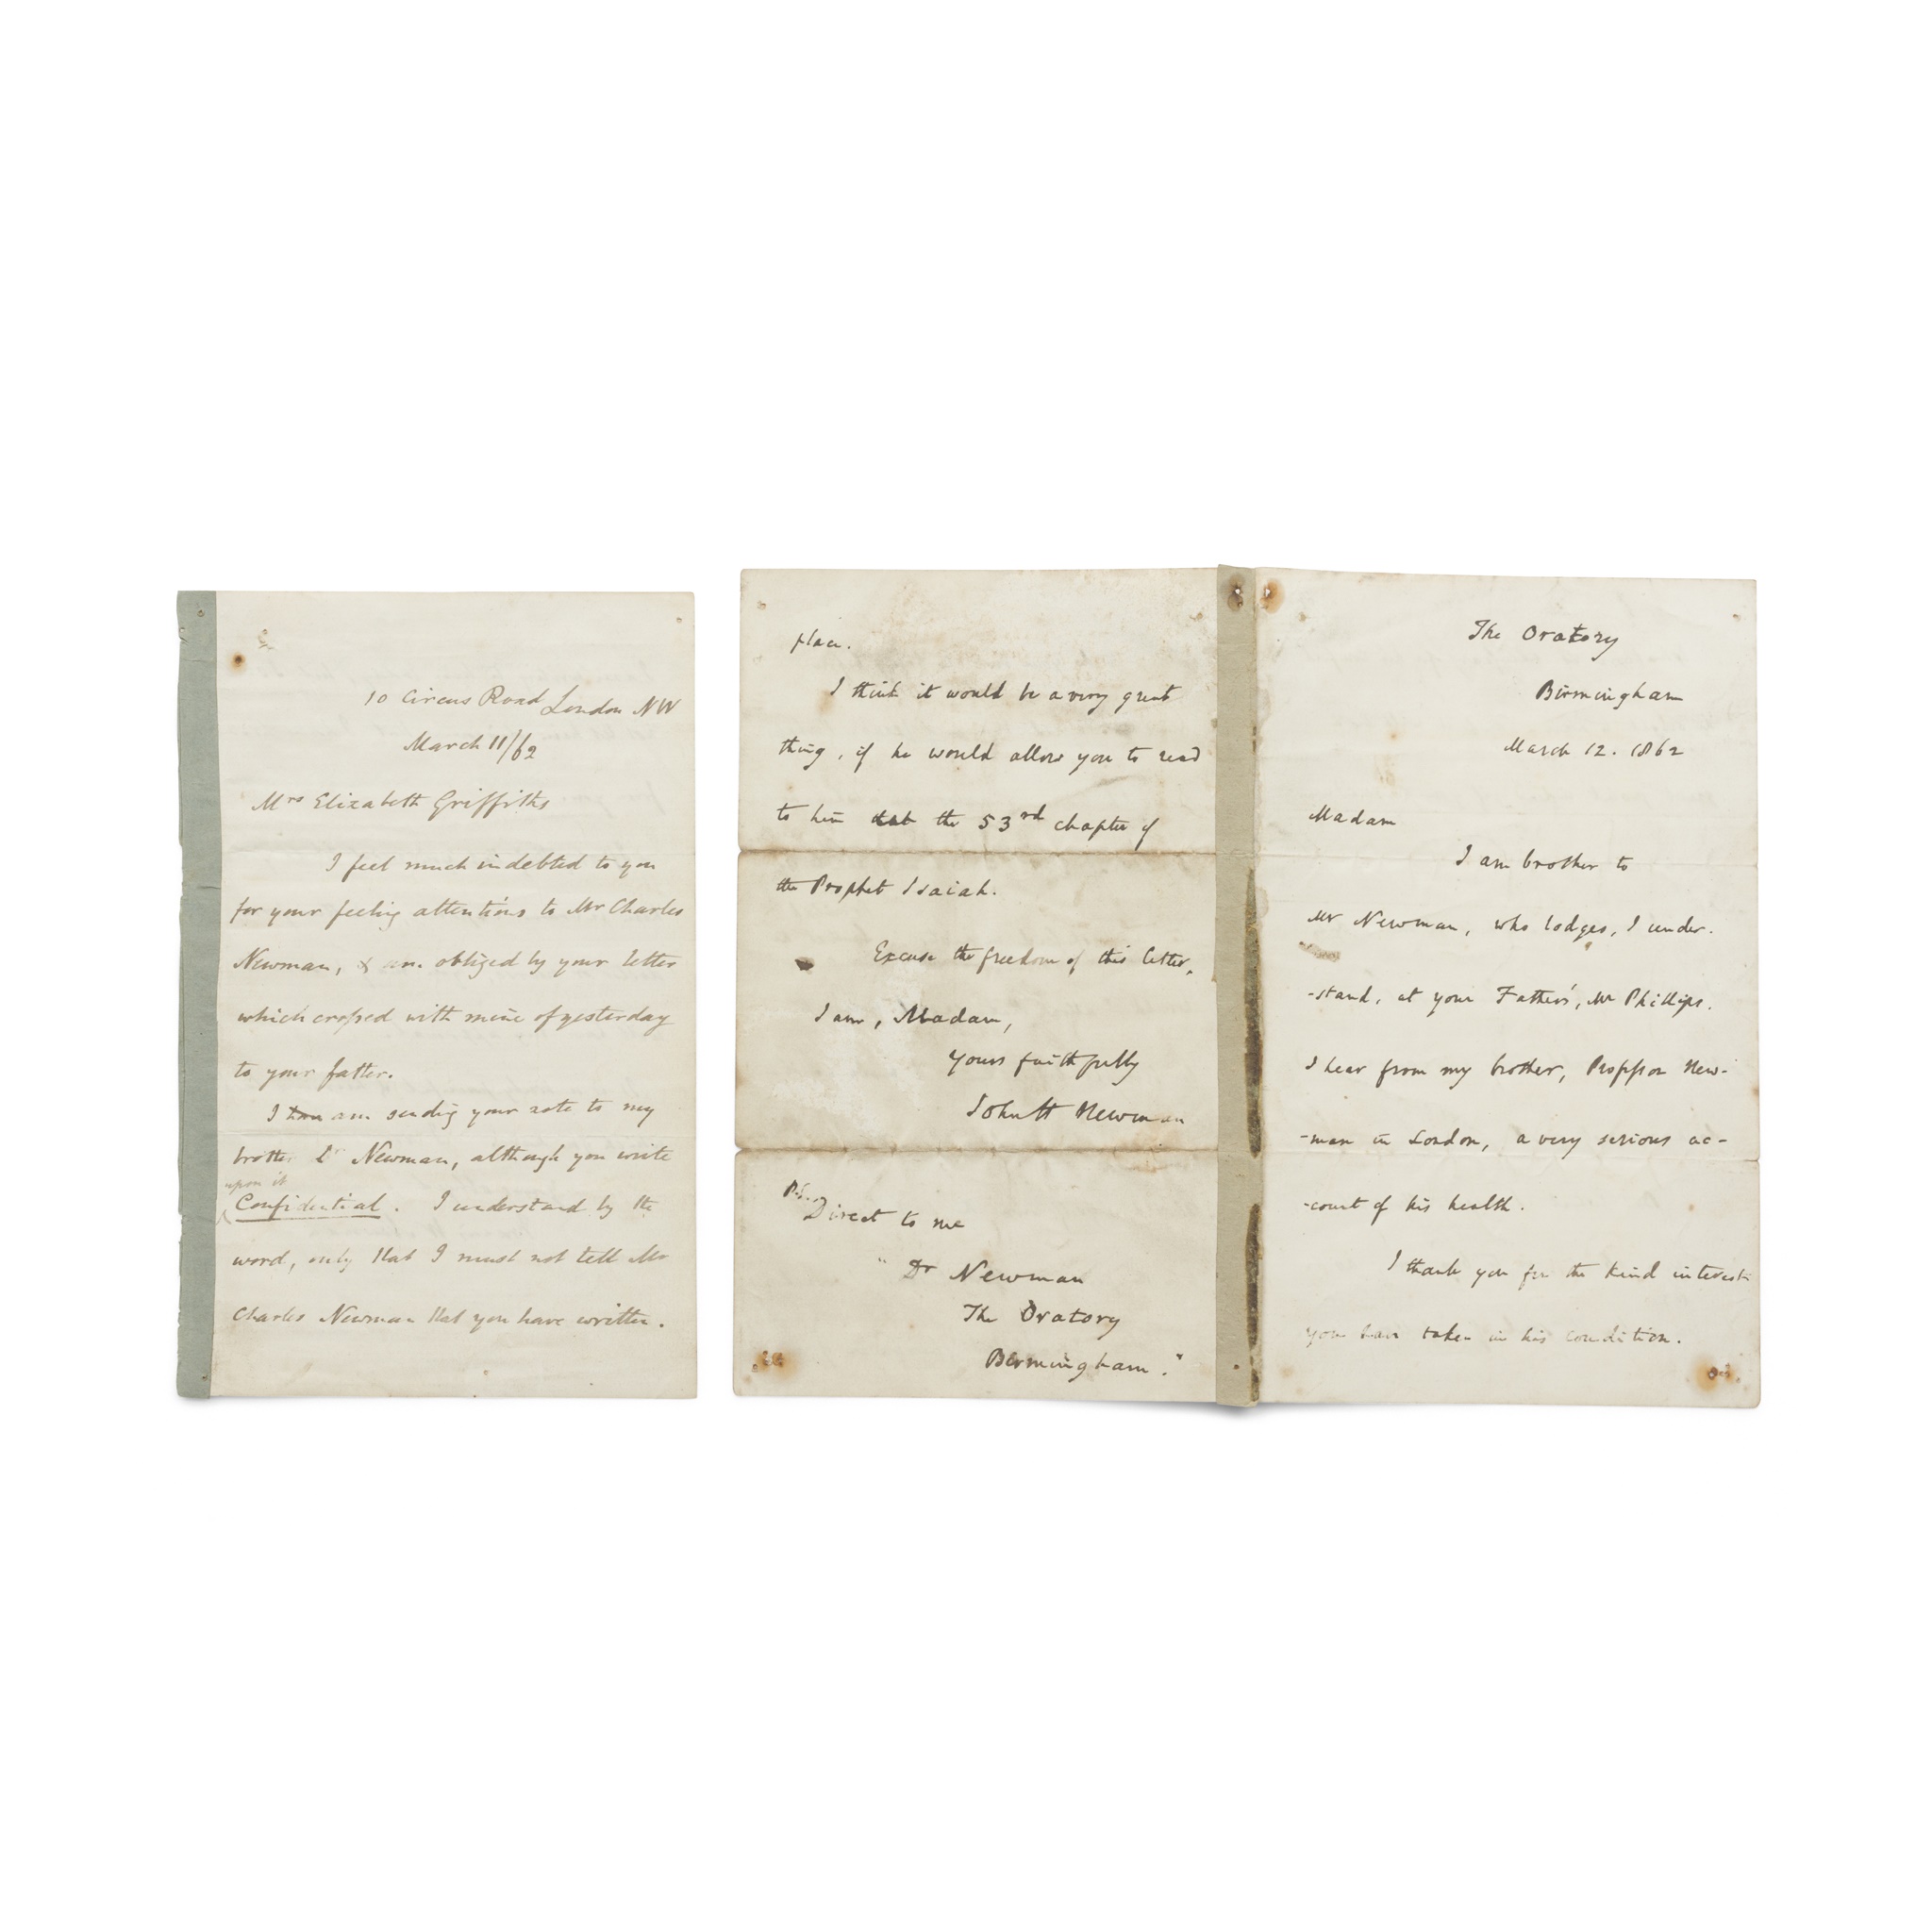 10 Circus Road London NW
March 11/62
Mrs Elizabeth Griffiths
I feel much indebted to you
for your feeling attentions to Mr Charles
Newman, & am obliged by your letter
which crossed with mine of yesterday
to your father.
I am sending your note to my
brother Dr Newman, although you write
upon it
Confidential. I understand by the
word, only that I must not tell Mr
Charles Newman that you have written.
place.
I think it would be a very great
thing, if he would allow you to read
to him the 53rd chapter of
the Prophet Isaiah.
Excuse the freedom of this letter,
I am, Madam,
Yours faithfully
John H Newman
PS. Direct to me
"Dr Newman
The Oratory
Birmingham."
The Oratory
Birmingham
March 12. 1862
Madam
I am brother to
Mr Newman, who lodges, I under-
-stand, at your Father's, Mr Phillips.
I hear from my brother, Professor New-
-man in London, a very serious ac-
-count of his health.
I thank you for the kind interest
you have taken in his condition.